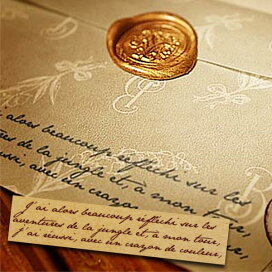 alors beaucoup réfléchi sur les
de la jungle et, à mon tour,
réussi, avec un crayon
J'ai alors beaucoup réfléchi sur les
aventures de la jungle et, à mon tour,
j'ai réussi, avec un crayon de couleur,